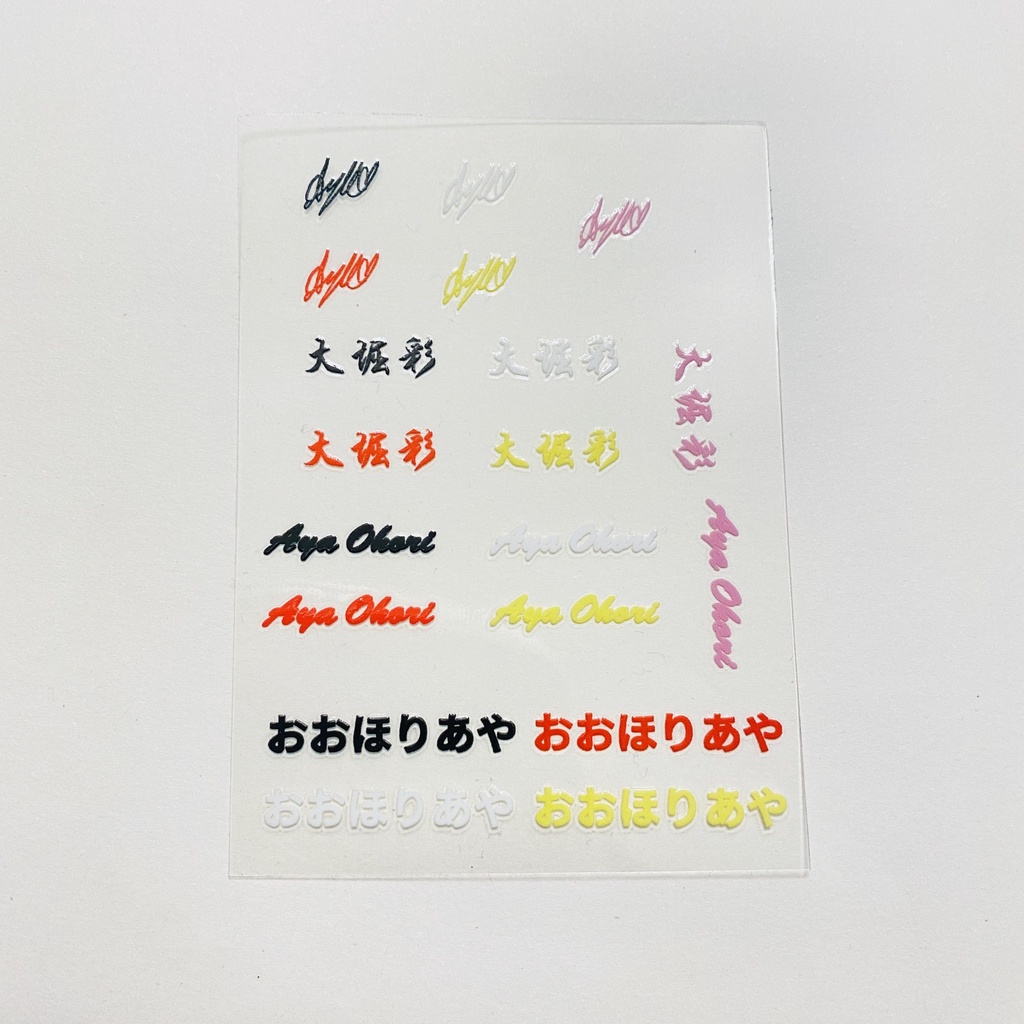 Aya
Aya
Aya
Aya
Aya
大堀彩 大堀彩
大堀彩
大堀彩 大堀彩
Aya Ohori Aya Ohori
Aya Ohori
Aya Ohori Aya Ohori
おおほりあや おおほりあや
おおほりあや おおほりあや